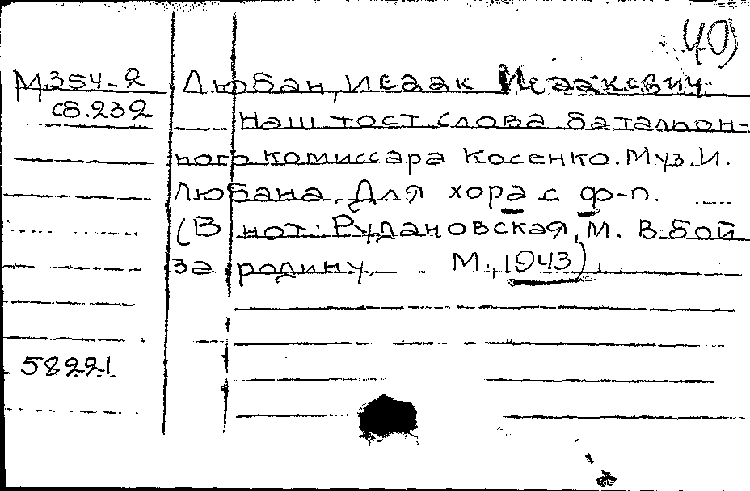 40)
М354-2 Любан, Исаак Исаакевич.
сб.232 Наш тост. слова баталион-
ного комиссара Косенко. Муз. И.
Любана. Для хора с ф-п.
(В нот: Рудановская, М. В бой
за родину. М., 1943)
58221